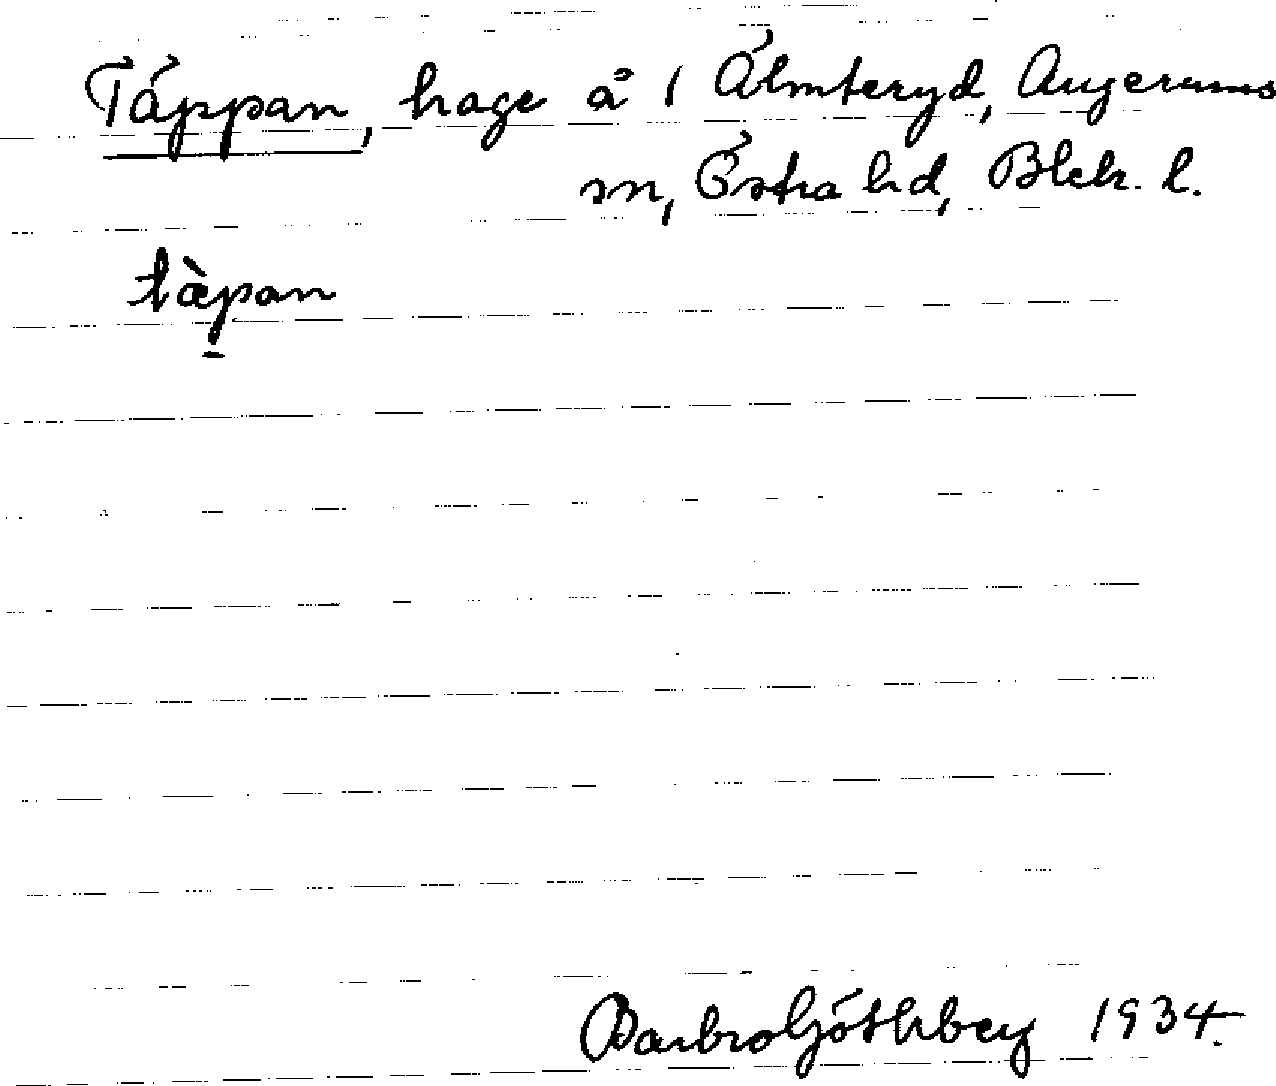 Täppan, hage å 1 Älmteryd, Augerums
sn, Östra hd, Blek. l.
tæ̀pan
Barbro Göthberg 1934.